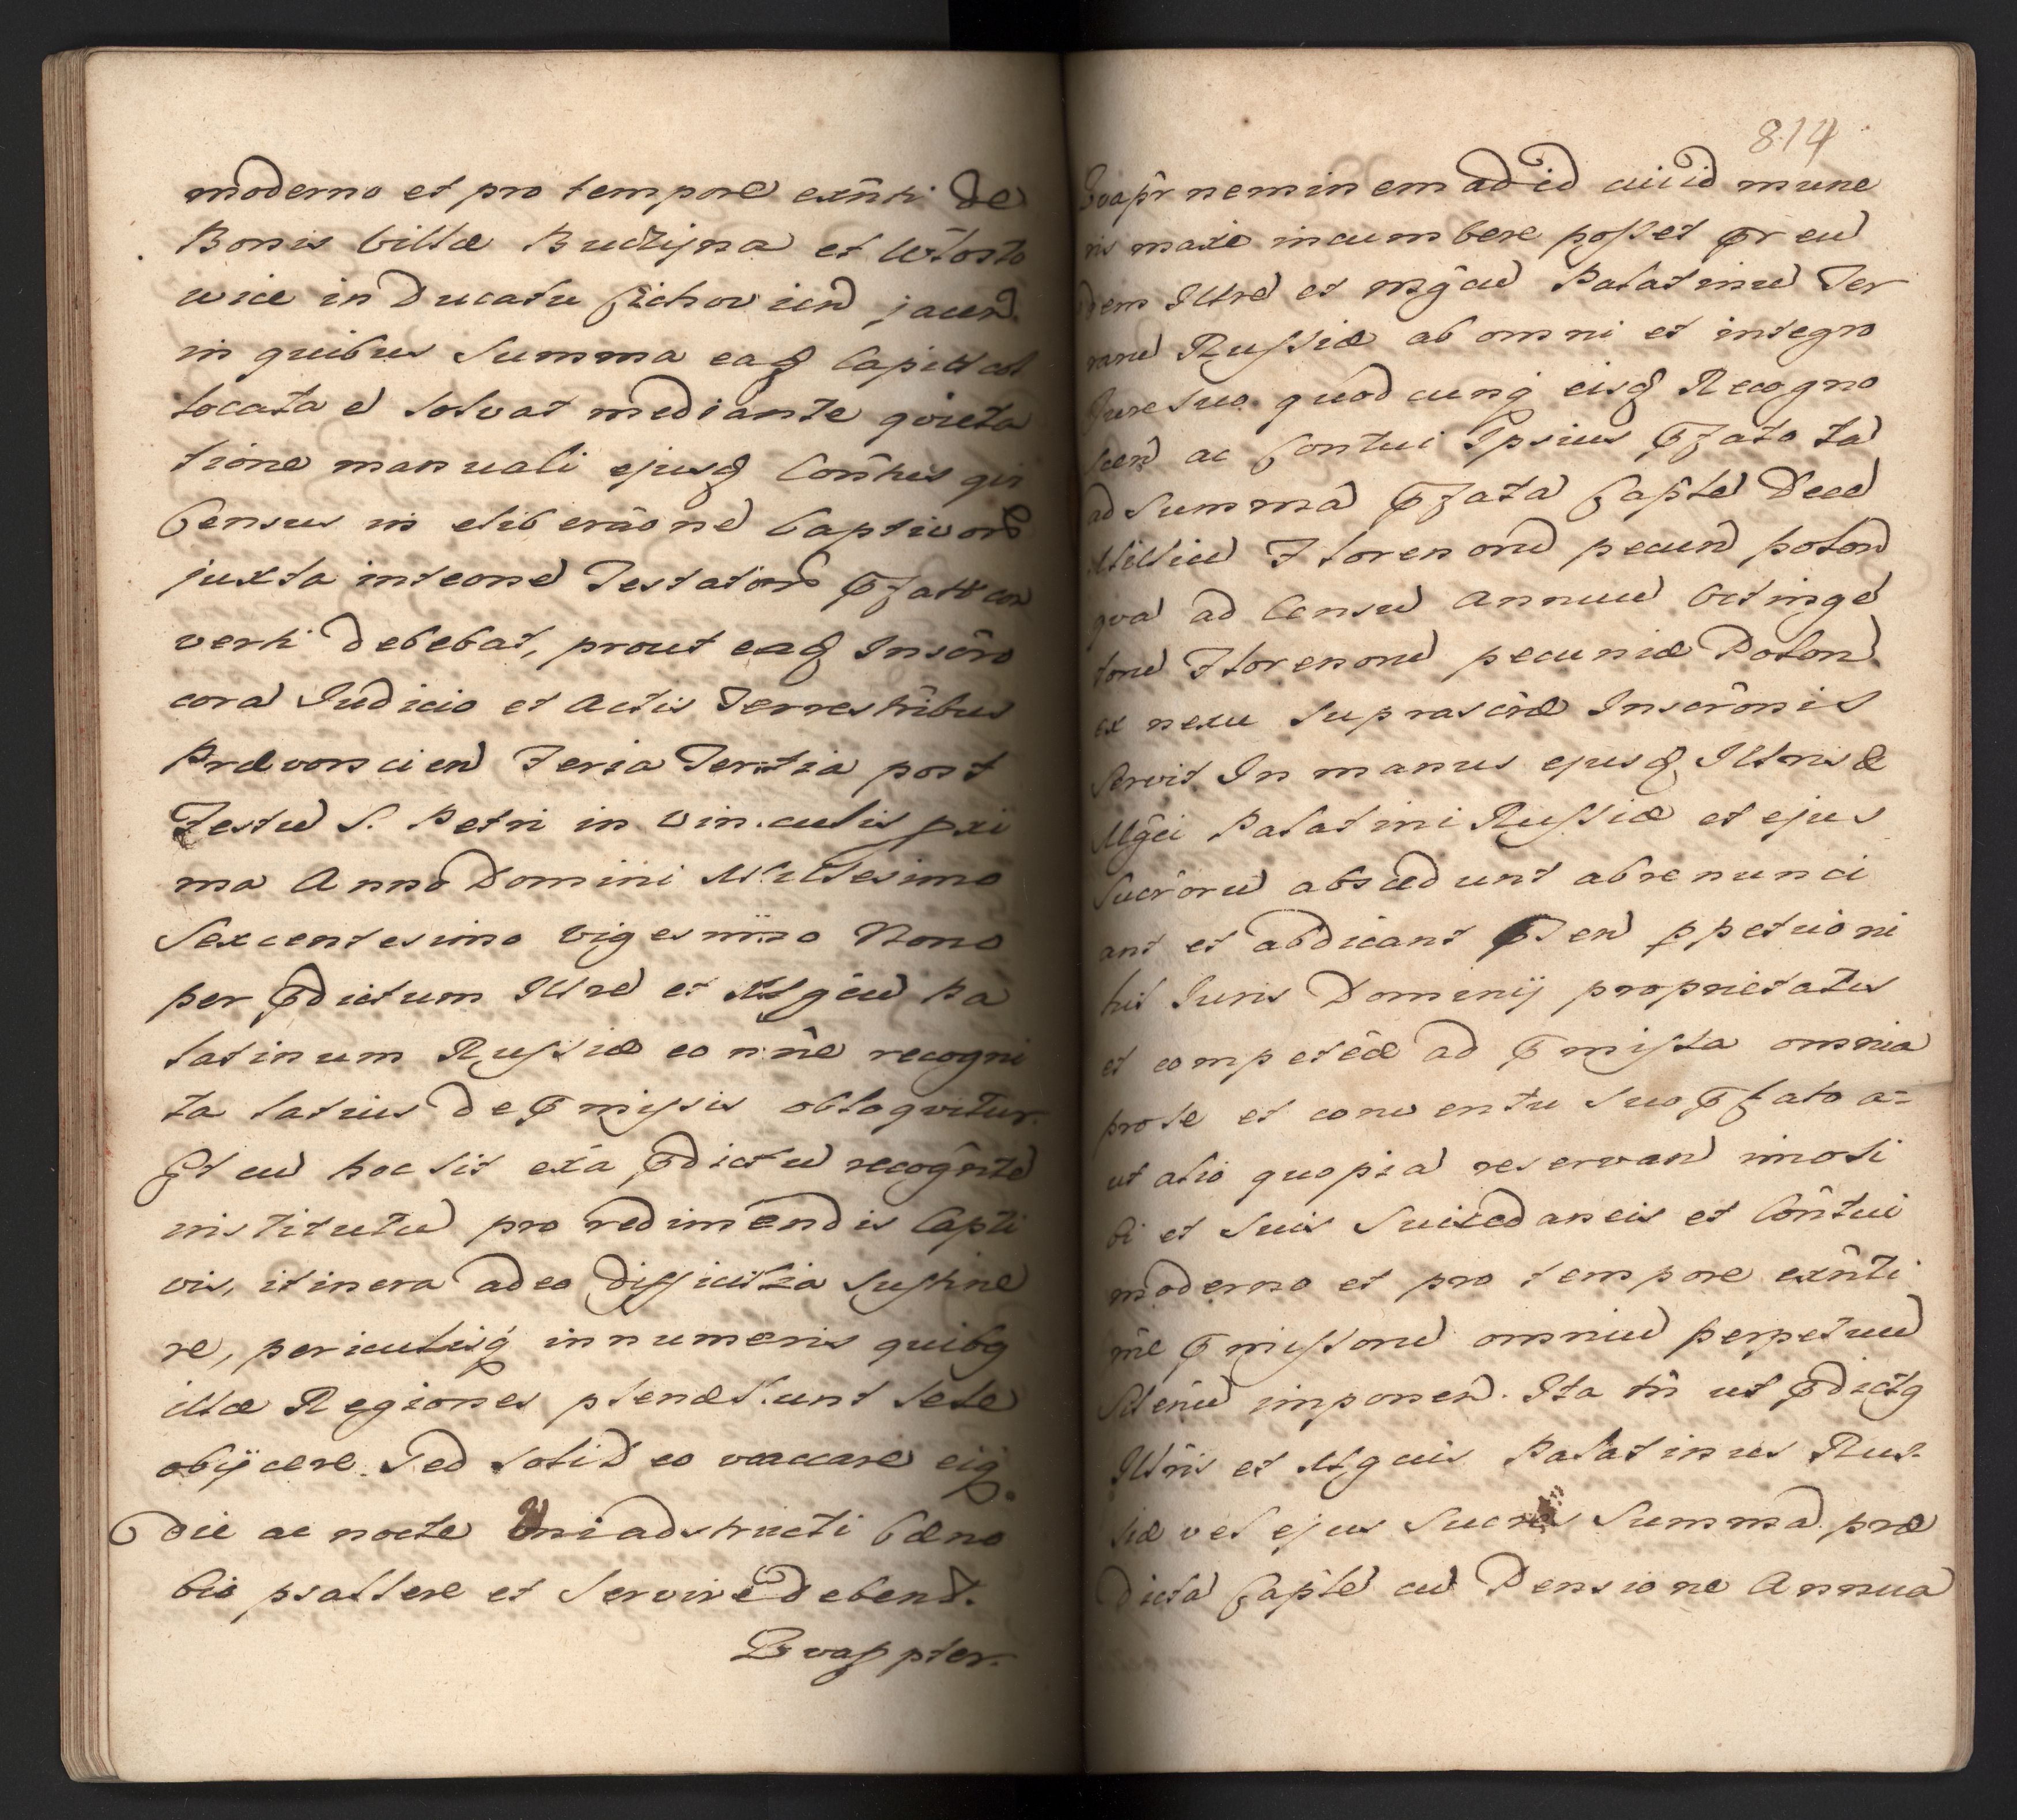 moderno et pro tempore exn̄ti de
Bonis Villæ Budzÿna et Włosto
wice in Ducatu Sichovien jacen.
in quibus Summa eaq Capitt col
locata e solvat mediante qvieta
tione manuali ejusq Conv̄tus qvi
Census in eliberāone Captivor
juxta inteone Testator Pfatt con
verti debebat, prout eaq Inscro
cora Judicio et Actis Terrestribus
Prævonscien Feria Tertia post
Festu S. Petri in Vinculis pxi
ma Anno Domini Millesimo
Sexcentesimo Vigesimo Nono
per Pdictum Illre et Mgcu Pa
latinum Russiæ eo nn̄e recogni
ta latius de Pmissis obloqvitur.
Et cu hoc sit exa Pdictu recognte
institutu pro redimendis Capti
vis, itinera adeo difficilia sustine
re, periculisq innumeris quibq
illæ Regiones plenæ sunt sese
obÿcere. Sed soli D eo vaccare eiq
die ac nocte uni adstructi Cæno
bio psallere et Servire debent.
Qvappter.
814
Qvapr neminem ad id cui id mune
ris maxe incumbere posset Pr eu
dem Illre et Mgcu Palatinu Ter
raru Russiæ ab omni et integro
Jure suo quodcunq eisq Recogno
scen ac Contui Ipsius Pfato ta
ad Summa Pfata Caplte Dece
Milliu Florenoru pecun polon
qva ad Censu Annuu Octinge
toru Florenoru pecuniæ Polon
ex nexu suprascræ Inscronis
servit In manus ejusq Illris &
Mgci Palatini Russiæ et ejus
Sucroru abscedunt abrenunci
ant et abdicant Pten ppetuo ni
hil Juris Dominij proprietatis
et competeæ ad Pmissa omnia
pro se et conventu suo Pfato a=
ut alio quopia reservan imo si
bi et suis Suiccedaneis et Cōntui
moderno et pro tempore exn̄ti
rne Pmissoru omniu perpetuu
Silenu imponen. Ita tn̄ ut Pdictq
Illris et Mgcus Palatinus Rus-
siæ vel ejus Sucres Summa præ
dicta Caplte cu Pensione Annua